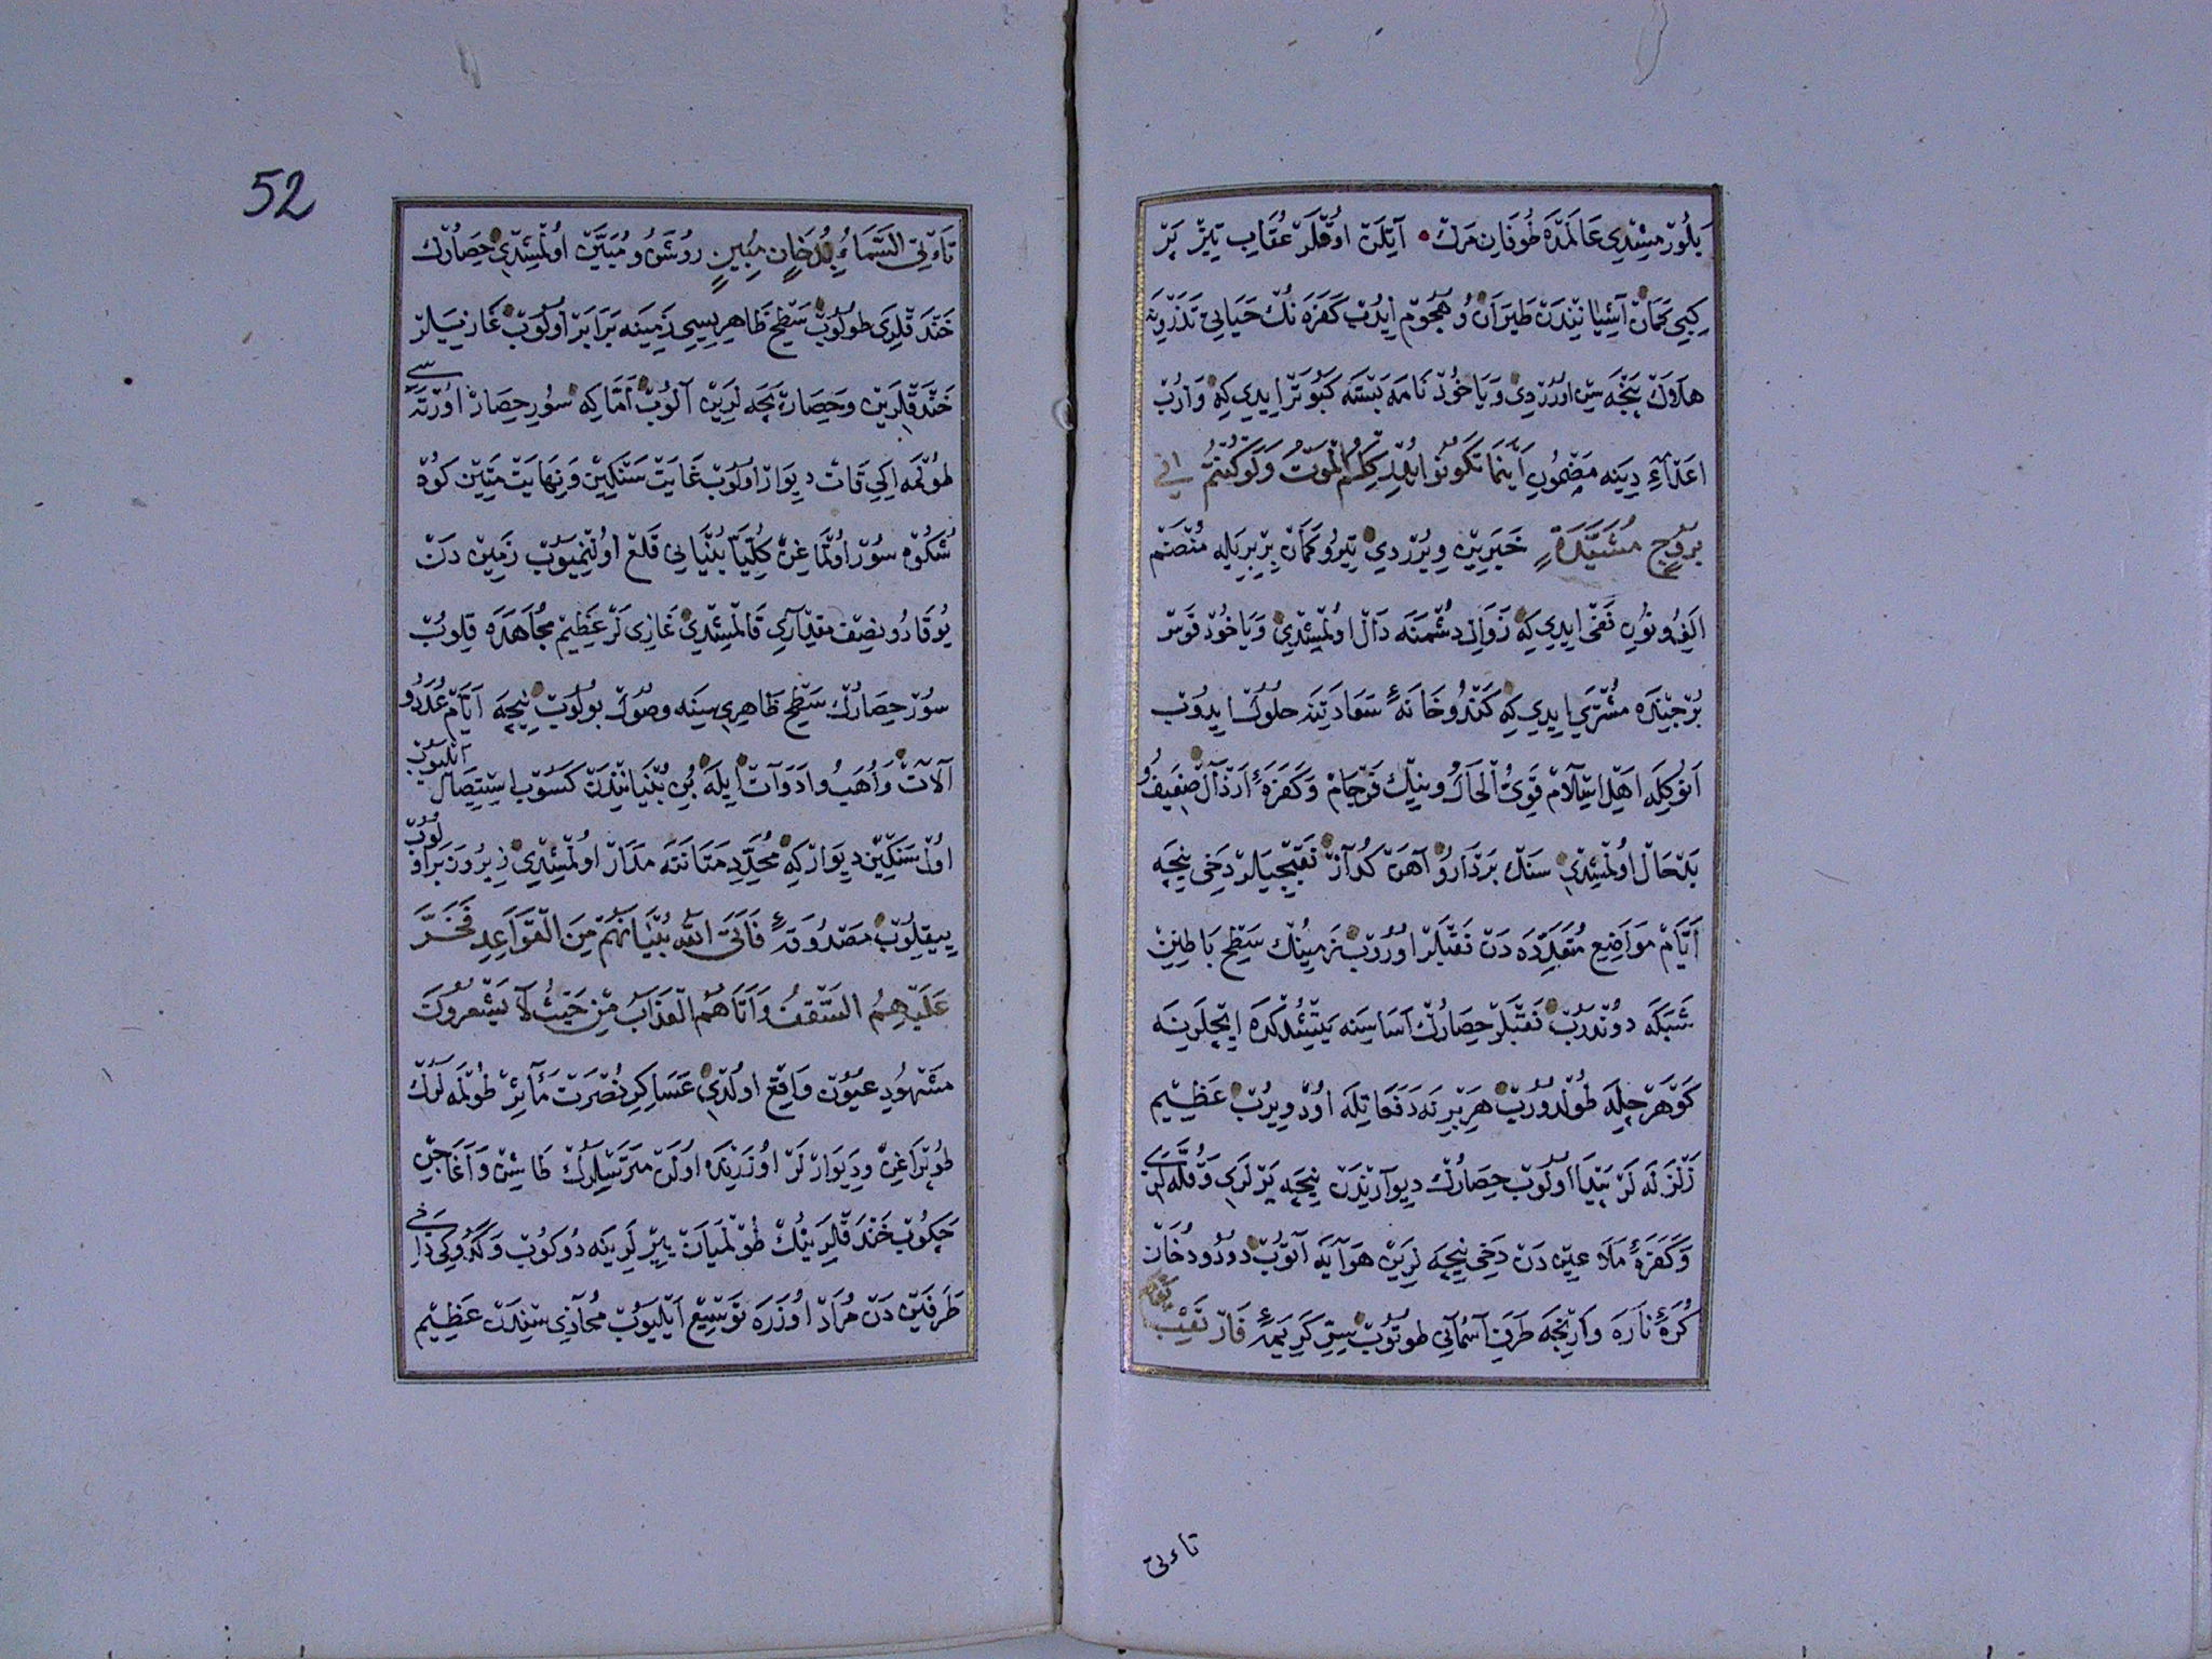 يلورمشدى عالمده طوفان مرك آتلن اوقلر عقاب تيز پر
كبى كمان آشيانندن طيران و هجوم ايدب كفره نك حيانى تذروينه
هلاوك پنجه سن اوررديى و يا خود نامه بسته كبوتر ايدى كه وارب
اعداء دينه مضمون اينما تكونوا يدرككم الموت ولو كنتم فى
بروج مشيدة خبرين ويرردى تير و كمان بربريله منضم
الف و نون نفى ايدى كه زوال دشمنه دال اولمشدى و يا خود قوس
برجنده مشترى ايدى كه كندو خانه سعادتنه حلول ايدوب
انوكله اهل اسلام قوى الحال و نيك فرجام و كفره ارذال ضعيف و
بدحال اولمشدى سنك بردار و آهن كداز نقبجيلر دخى نيجه
ايام مواضع متعدده دن نقبلر اوروب زمينك سطح باطنن
شبكه دوندرب نقبلر حصارك اساسنه يتشدكده ايچلرينه
كوهرچله طولدورب هر برنه دفعاتله اود ويرب عظيم
زلزله لر پيدا اولوب حصارك ديوارندن نيجه يرلرى و قله لرى
و كفره ملاعين دن دخى نيجه لرين هوايه آتوب دود و دخان
كره ناره وارنجه طرف آسمانى طوتوب سر كريمه فارتقب يوم
تاءتى
52
تاءتى السماء بدخان مبين روشن و مبين اولمشدى حصارك
خندقلرى طولوب سطح ظاهريسى زمينه برابر اولوب غازيلر
خندقلرين و حصارپچه لرين آلوب اما كه سور حصار اورته سى
طولمه ايكى قات ديوار اولوب غايت سنكين و نهايت متين كوه
شكوه سور اولماغن كليا بنيانى قلع اولنميوب زمين دن
يوقارو نصف مقدارى قالمشدى غازى لر عظيم مجاهده قلوب
سور حصارك سطح ظاهرى سنه وصول بولوب نيجه ايام عدد و
آلات و اهب و ادوات ايله بن بنيانندن كسوب استيصال ايليوب
اول سنكين ديوار كه محدد متانته مدار اولمشدى زير و زبر اولوب
ييقلوب مصدوقه فاتى الله بنيانهم من القواعد فخر
عليهم السقف و اتاهم العذاب من حيث لا يشعرون
مشهود عيون واقع اولدى عساكر نصرت مآثر طولمه لرك
طوپراغن و ديوارلر اوزرنده اولن متريسلرك طاشن و آغاجن
چكوب خندقلرينك طولميان يرلرينه دوكوب و كدوكى دخى
طرفين دن مراد اوزره توسيع ايليوب محاذى سندن عظيم